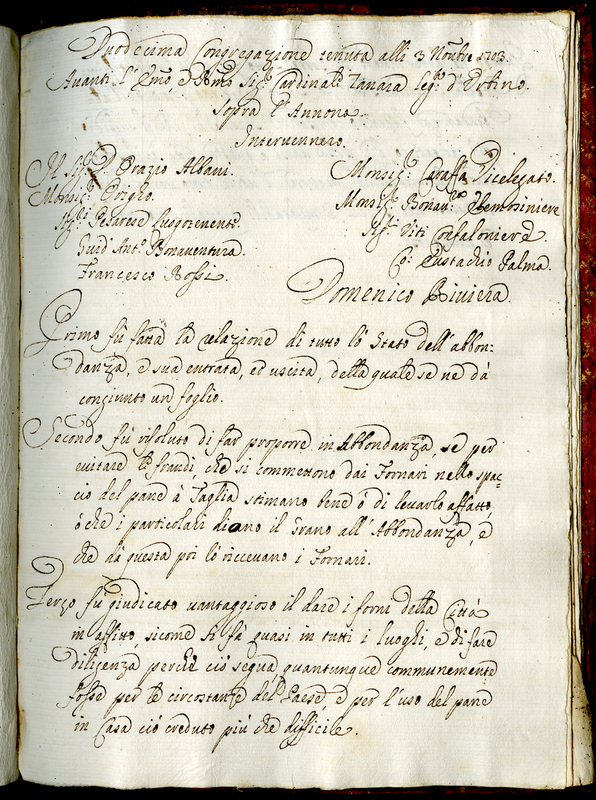 Duodecima Congregazione tenuta alli 3 Nov:bre 1703.
Avanti l'Em̃o, e Rm̃o Sig.r Cardinal Tanara Leg.to d'Urbino.
Sopra l'Annona
Intervennero.
Il Sig.r D. Orazio Albani.
Monsig.r Origho.
Sig.r Pesarese Luogotenente.
Guid'Ant.o Bonaventura.
Francesco Bossi.
Monsig.r Caraffa Vicelegato.
Monsig.r Bonav.ra Elemosiniere
Sig.r Viti Confaloniere
Co: Eustachio Palma.
Domenico Riviera.
Primo fù fatta la relazione di tutto lo Stato dell'abbon-
danza, e sua entrata, ed uscita, della quale se ne dà
congiunto un foglio.
Secondo fù risoluto di far proporre in Abbondanza se per
evitare le fraudi, che si commettono dai Fornari nello spac-
cio del pane à Taglia stimano bene ò di levarlo affatto,
ò che i particolari diano il Grano all'Abbondanza, e
che da questa poi lo riccevano i Fornari.
Terzo fù giudicato vantaggioso il dare i forni della Città
in affitto sicome si fà quasi in tutti i luoghi, e di fare
diligenza perche ciò segua quantunque communemente
fosse per le circostanze del Paese, e per l'uso del pane
in Casa ciò creduto più che difficile.